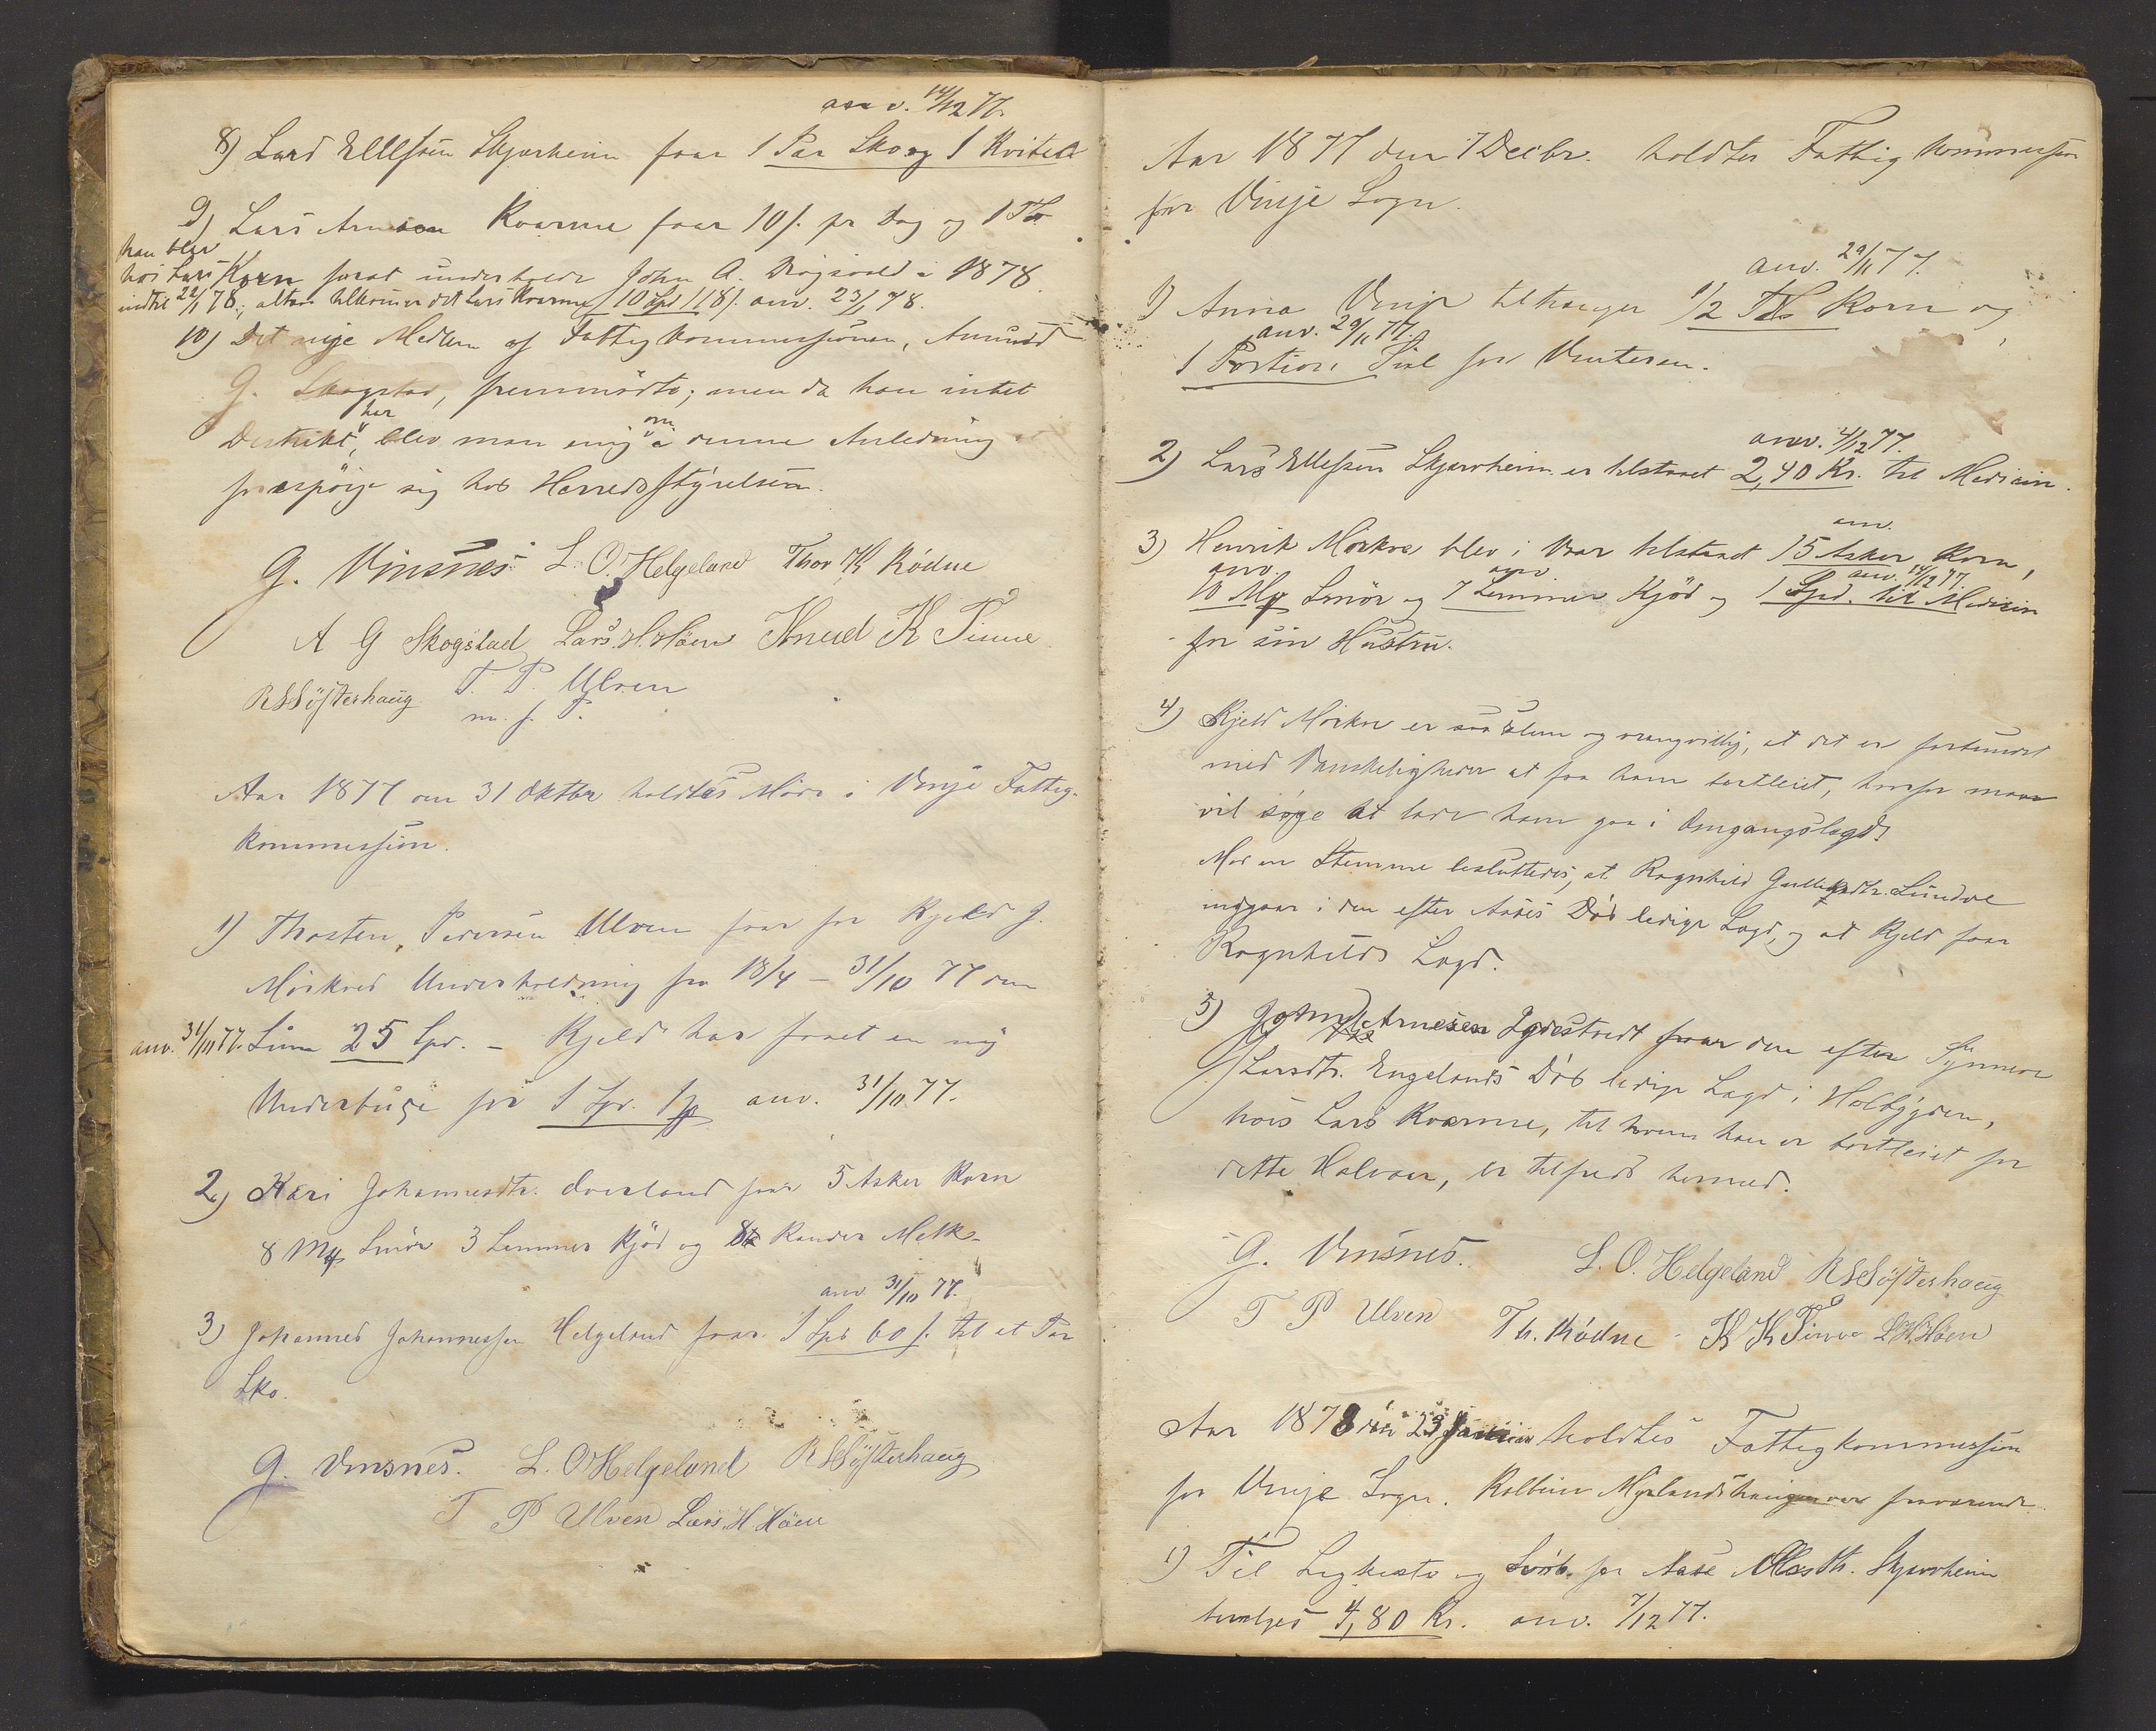 anv. 14/12 77.
8) Lars Ellefsen Skjerheim faar 1 Par Sko og 1 Kvitel
9) Lars Arneson Kvarme faar 10 s. pr Dag og 1 Td
han blev
hos Lars Korn forat underholde John A. Drøgsvold i 1878.
indtil 22/1 78., altsaa tilkommer det Lars Kvarme 10 Spd 118 s. anv. 23/1 78.
10) Det nye Medlem af Fattigkommissionen, Amund
G. Skogstad, fremmødte; men da han intet
Distrikt har, blev man enig om i denne Anledning at
forespørge sig hos Herredsstyrelsen.
G. Vinsnes L. O. Helgeland Thor K Rödne
A G Skogstad Lars. H. Höen Knud K Tinne
R S Söfsterhaug T. P. Ulven
m. f. P.
Aar 1877 den 31 Oktbr holdtes Møde i Vinje Fattig-
kommission.
1) Thosten Pedersen Ulven faar for Kjeld J.
Mørkves Underholdning fra 18/4 - 31/10 77 den
anv. 31/10 77. Sum 25 Spd. - Kjeld har faaet en ny
Underbuxe for 1 Spd. anv. 31/10 77.
2) Kari Johannesdtr. Øverland faar 5 Asker Korn
8 Mrk Smör 3 Lemmer Kjöd og 8 Kander Melk.
anv 31/10 77.
3) Johannes Johannessen Helgeland faar 1 Spd 60 s. til et Par
Sko.
G. Vinsnes. L. O Helgeland R S Söfsterhaug
T P Ulven Lars. H Höen
Aar 1877 den 7 Decbr. holdtes Fattigkommission
for Vinje Sogn.
anv. 29/11 77.
1) Anna Vinje tiltrænger 1/2 Td Korn og
anv. 29/11 77.
1 Portion Sul for Vinteren.
anv. 4/12 77.
2) Lars Ellefsen Skjerheim er tilstaaet 2,40 Kr. til Medicin.
anv.
3) Henrik Mörkve blev i Vaar tilstaaet 15 Asker Korn,
anv. anv. anv. 14/12 77.
10 Mrk Smör og 7 Lemmer Kjöd og 1 Spd. til Medicin
for sin Hustru.
4) Kjeld Mörkve er saa slem og vrangvillig, at det er forbundet
med Vanskeligheder at faa ham bortleiet, hvorfor man
vil søge at lade ham gaa i Omgangslægd.
Mod en Stemme besluttedes, at Ragnhild Gulleiksdtr. Lundve
indgaar i den efter Aases Död ledige Lægd, og at Kjeld faar
Ragnhilds Lægd.
5) Arnesen faar den efter Synneve
Larsdtr. Engelands Död ledige Lægd i Holbygden,
hvis Lars Kvarme, til hvem han er bortleiet for
dette Halvaar, er tilfreds hermed.
G. Vinsnes. L. O. Helgeland R S Söfsterhaug
T P Ulven Th. Rödne K K Tinne L H Höen
Aar 1878 den 23 Januar holdtes Fattigkommission
for Vinje Sogn. Kolbein Myrlandshaugen var fraværende.
1) Til Ligkiste og Svøb for Aase Olasdtr. Skjerheim
bevilges 4,80 Kr. anv. 7/12 77.